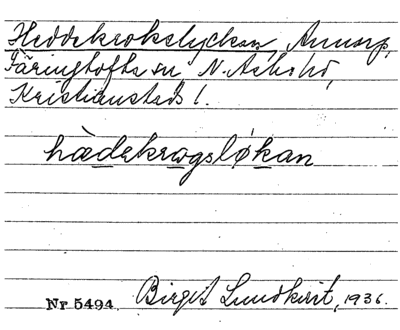 Heddekrokslyckan, Annarp,
Färingtofta sn, N. Åsbo hd,
Kristianstads l.
hàdekrωgsløkan
Nr 5494. Birgit Lundkvist, 1936.